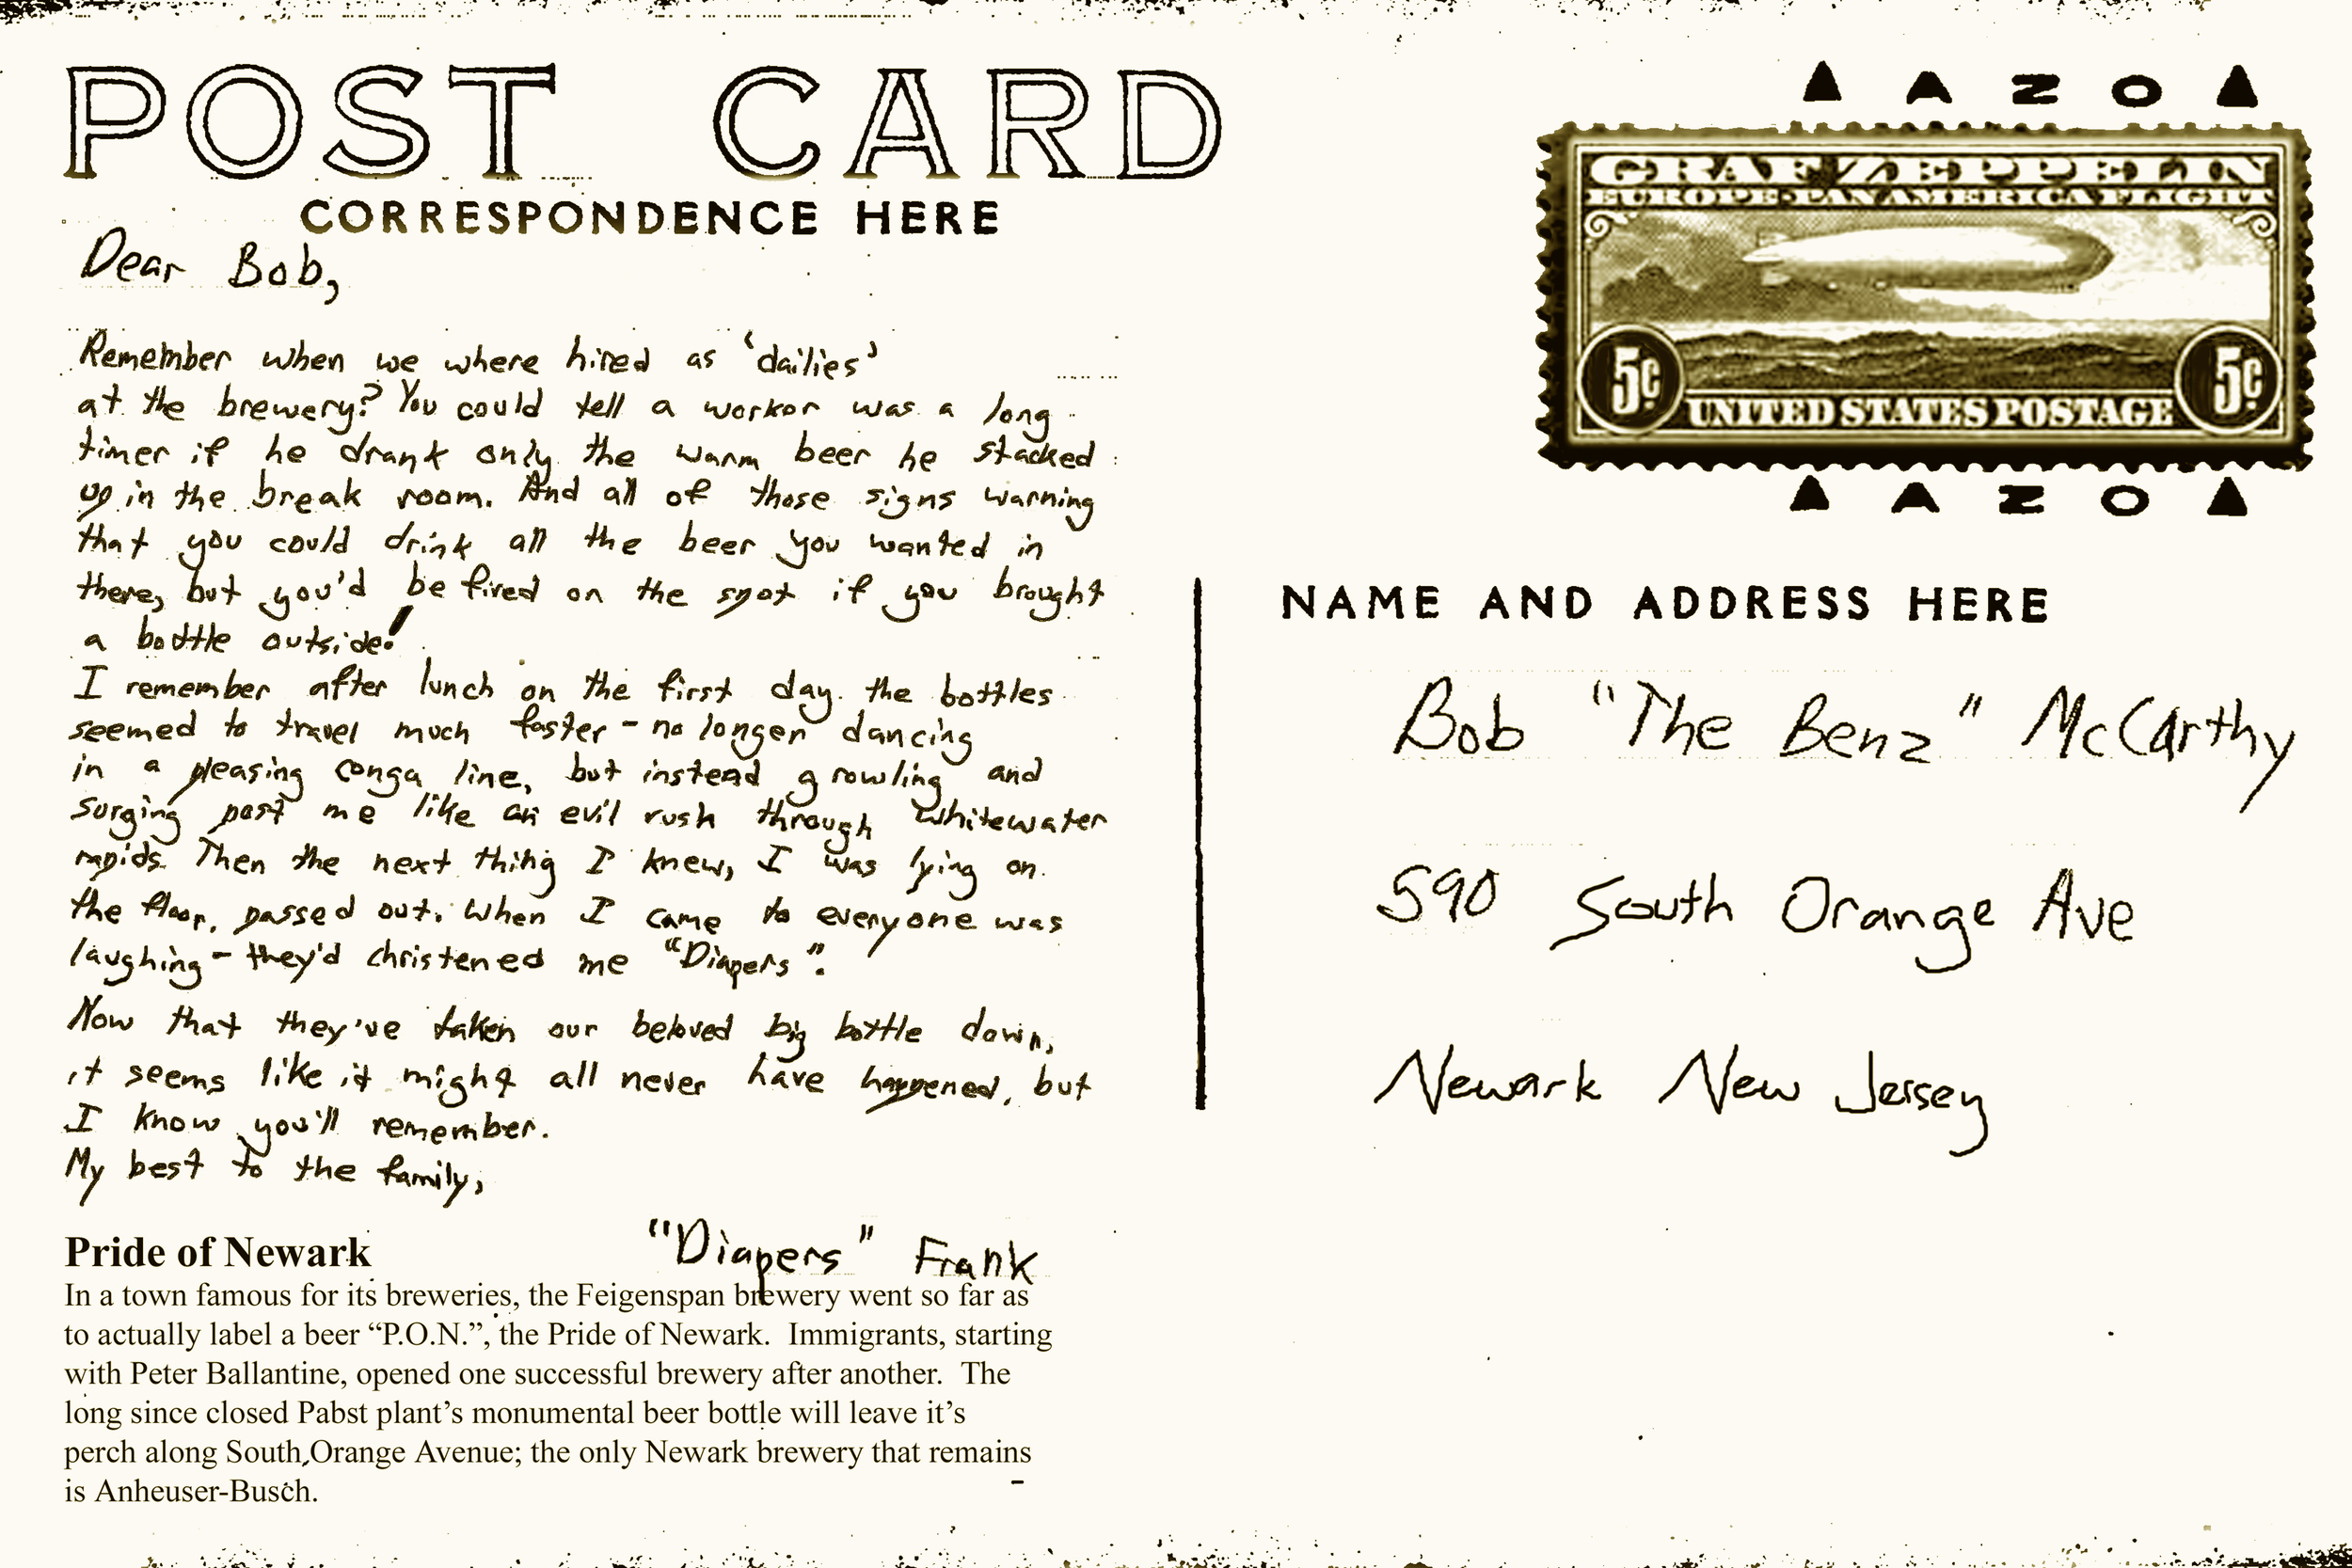 POST CARD
CORRESPONDENCE HERE
Dear Bob,
Remember when we where hired as 'dailies'
at the brewery? You could tell a workor was a long
timer if he drank only the warm beer he stacked
up in the break room. And all of those signs warning
that you could drink all the beer you wanted in
there, but you'd be fired on the spot if you brought
a bottle outside!
I remember after lunch on the first day the bottles
seemed to travel much faster - no longer dancing
in a pleasing conga line, but instead growling and
surging past me like an evil rush through whitewater
rapids. Then the next thing I knew, I was lying on
the floor, passed out. When I came to everyone was
laughing - they'd christened me "Diapers".
Now that they've taken our beloved big bottle down,
it seems like it might all never have happened, but
I know you'll remember.
My best to the family,
"Diapers" Frank
Pride of Newark
In a town famous for its breweries, the Feigenspan brewery went so far as
to actually label a beer “P.O.N.”, the Pride of Newark. Immigrants, starting
with Peter Ballantine, opened one successful brewery after another. The
long since closed Pabst plant’s monumental beer bottle will leave it’s
perch along South Orange Avenue; the only Newark brewery that remains
is Anheuser-Busch.
AZO
GRAF ZEPPELIN
EUROPE-PAN AMERICA FLIGHT
5¢ 5¢
UNITED STATES POSTAGE
AZO
NAME AND ADDRESS HERE
Bob "The Benz" McCarthy
590 South Orange Ave
Newark New Jersey